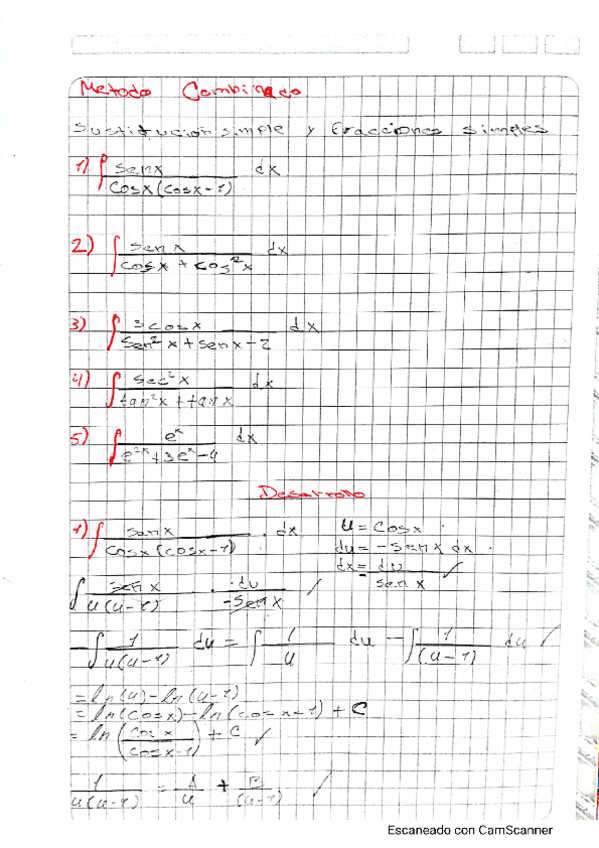 Metodo Combinado.
Sustitución simple y fracciones simples
1) ∫ senx / cosx(cosx-1) dx
2) ∫ senx / cosx + cos²x dx
3) ∫ 3cosx / sen²x + senx - 2 dx
4) ∫ sec²x / tan²x + tanx dx
5) ∫ eˣ / e²ˣ + 3eˣ - 4 dx
Desarrollo
1) ∫ senx / cosx(cosx-1) . dx
u = cosx
du = -senx dx
dx = du / -senx ✓
∫ senx / u(u-1) . du / -senx ✓
-∫ 1 / u(u-1) du = ∫ 1 / u du - ∫ 1 / (u-1) du ✓
= ln(u) - ln(u-1)
= ln(cosx) - ln(cosx-1) + C
= ln(cosx / cosx-1) + C ✓
1 / u(u-1) = A / u + B / (u-1) ✓
Escaneado con CamScanner